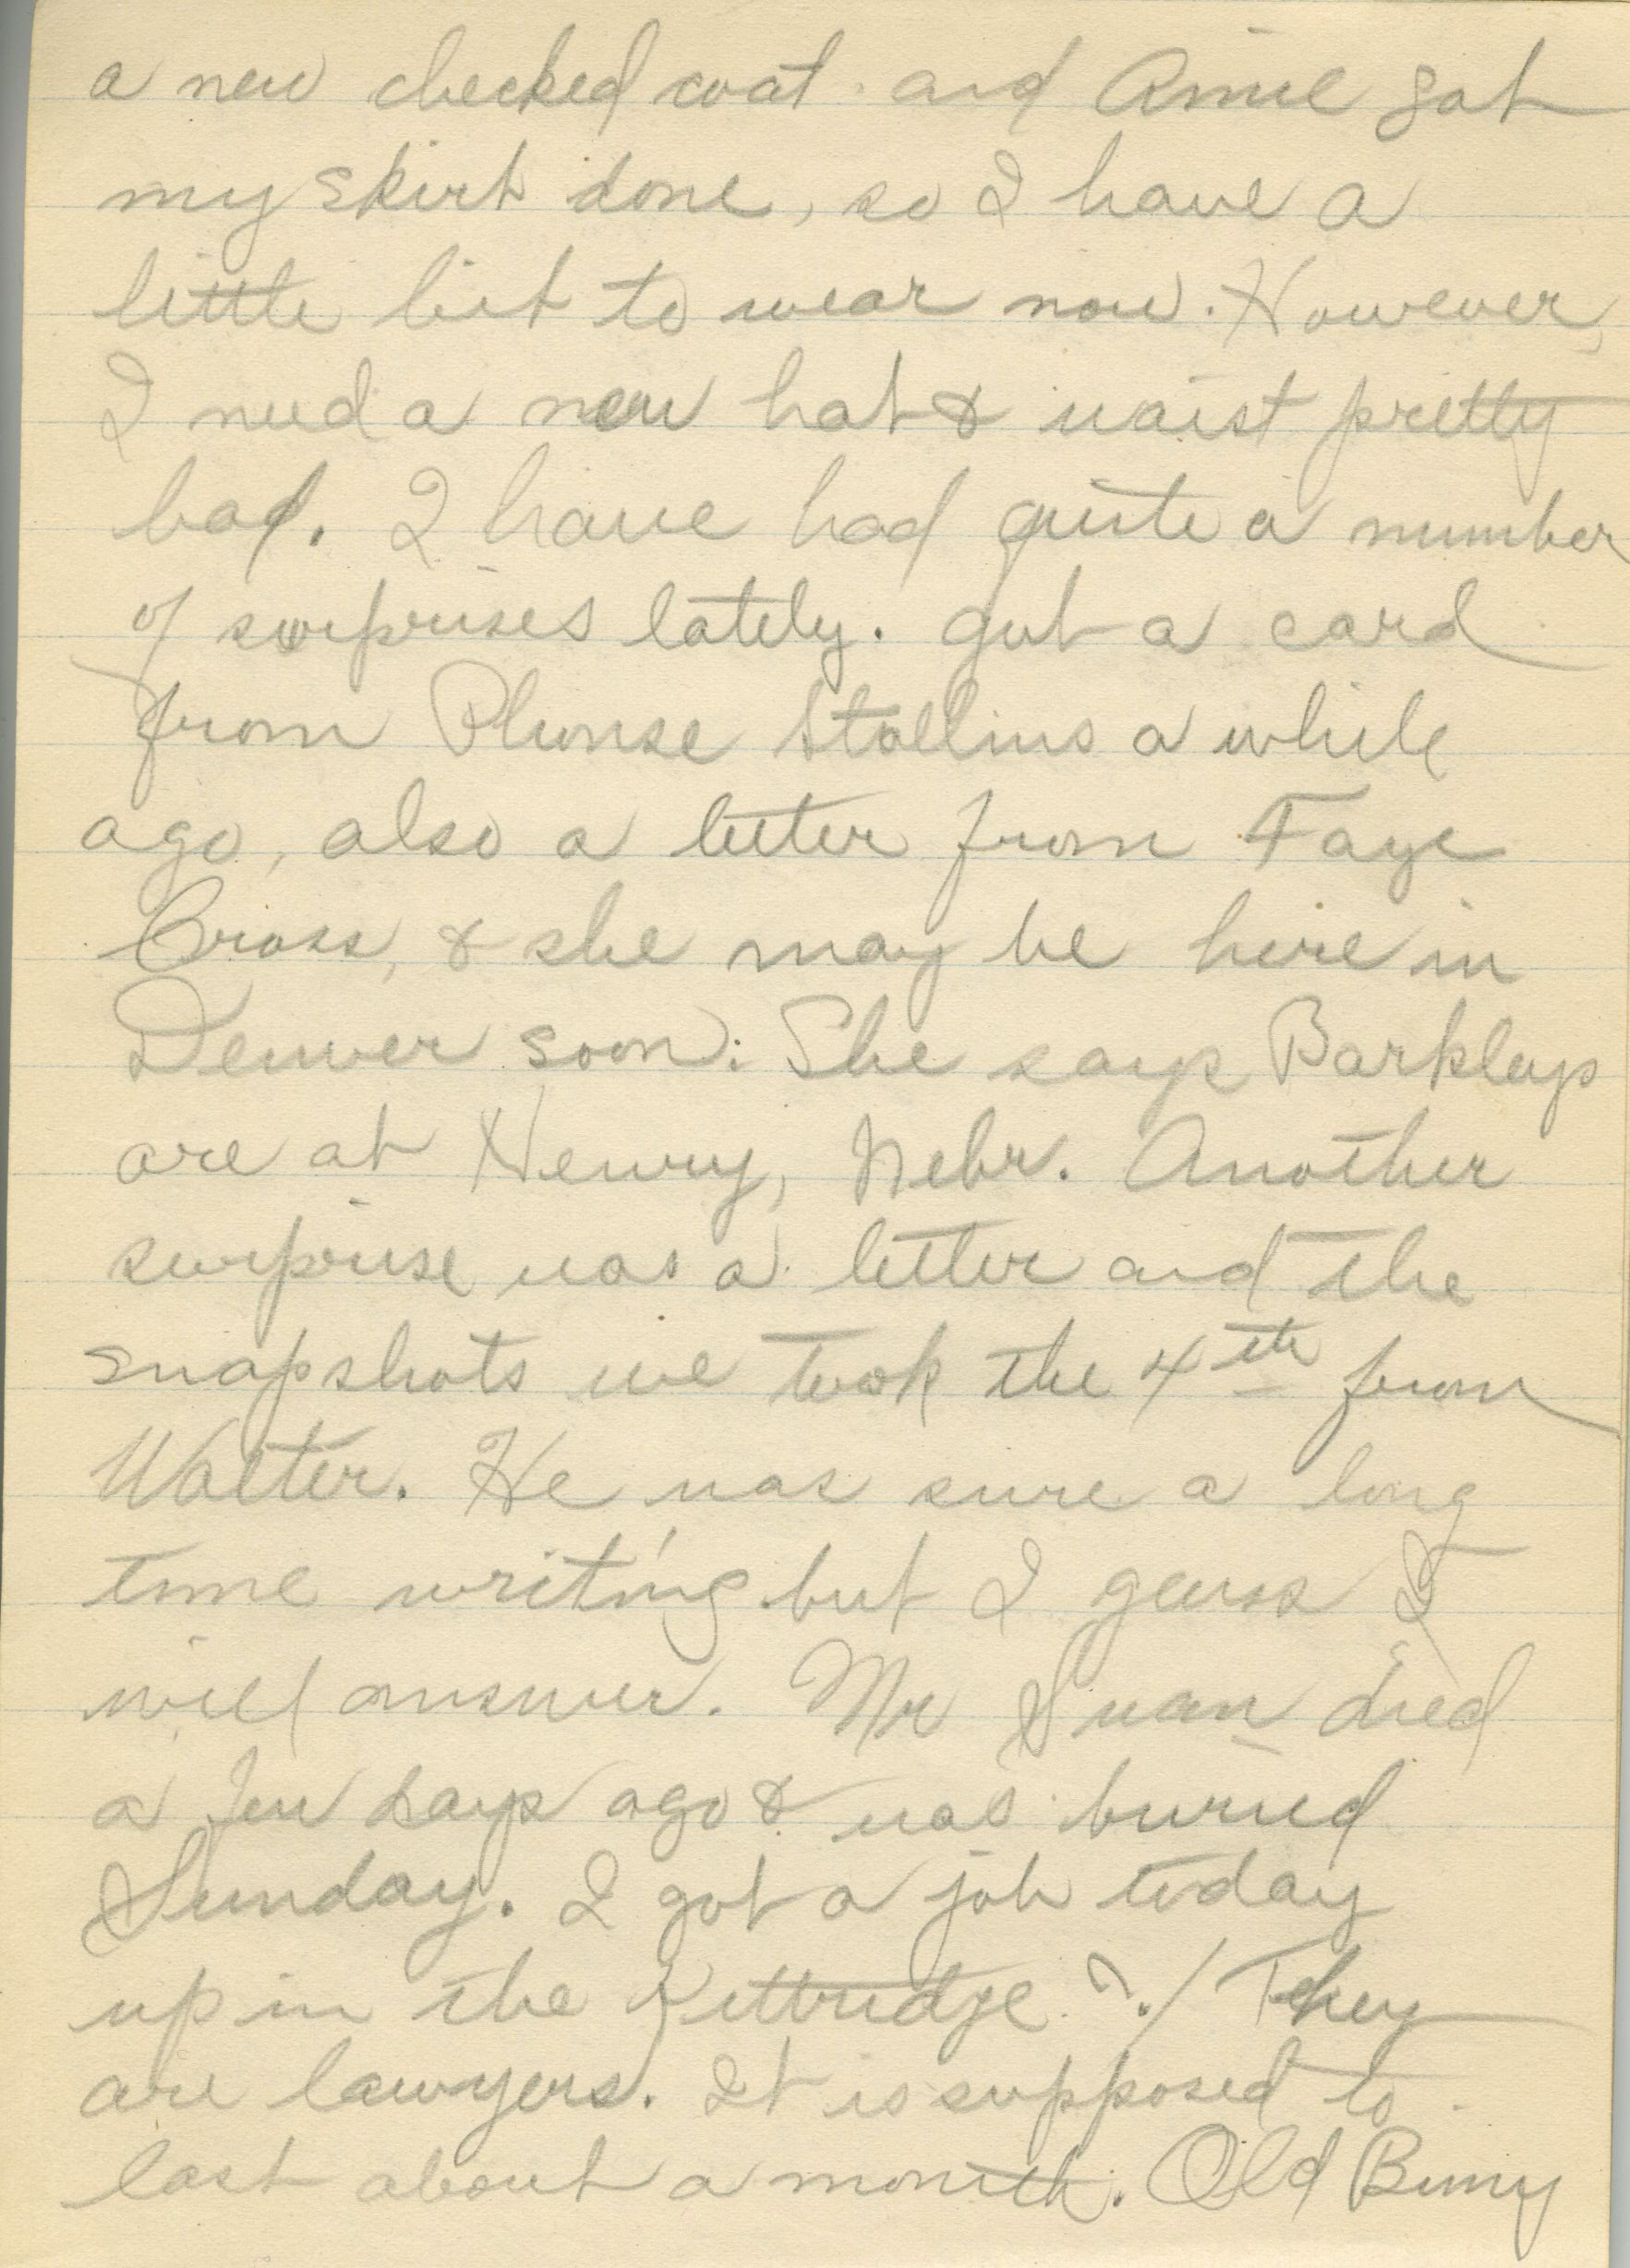 a new checked coat and Annie got
my skirt done, so I have a
little bit to wear now. However,
I need a new hat & waist pretty
bad. I have had quite a number
of surprises lately. Got a card
from Stallins a while
ago, also a letter from Faye
Cross, & she may be here in
Denver soon. She says Barkleys
are at Henry, Nebr. Another
surprise was a letter and the
snapshots we took the 4th from
Walter. He was sure a long
time writing but I guess I
will answer. Mr Swan died
a few days ago & was buried
Sunday. I got a job today
up in the Kittridge ?! They
are lawyers. It is supposed to
last about a month. Old